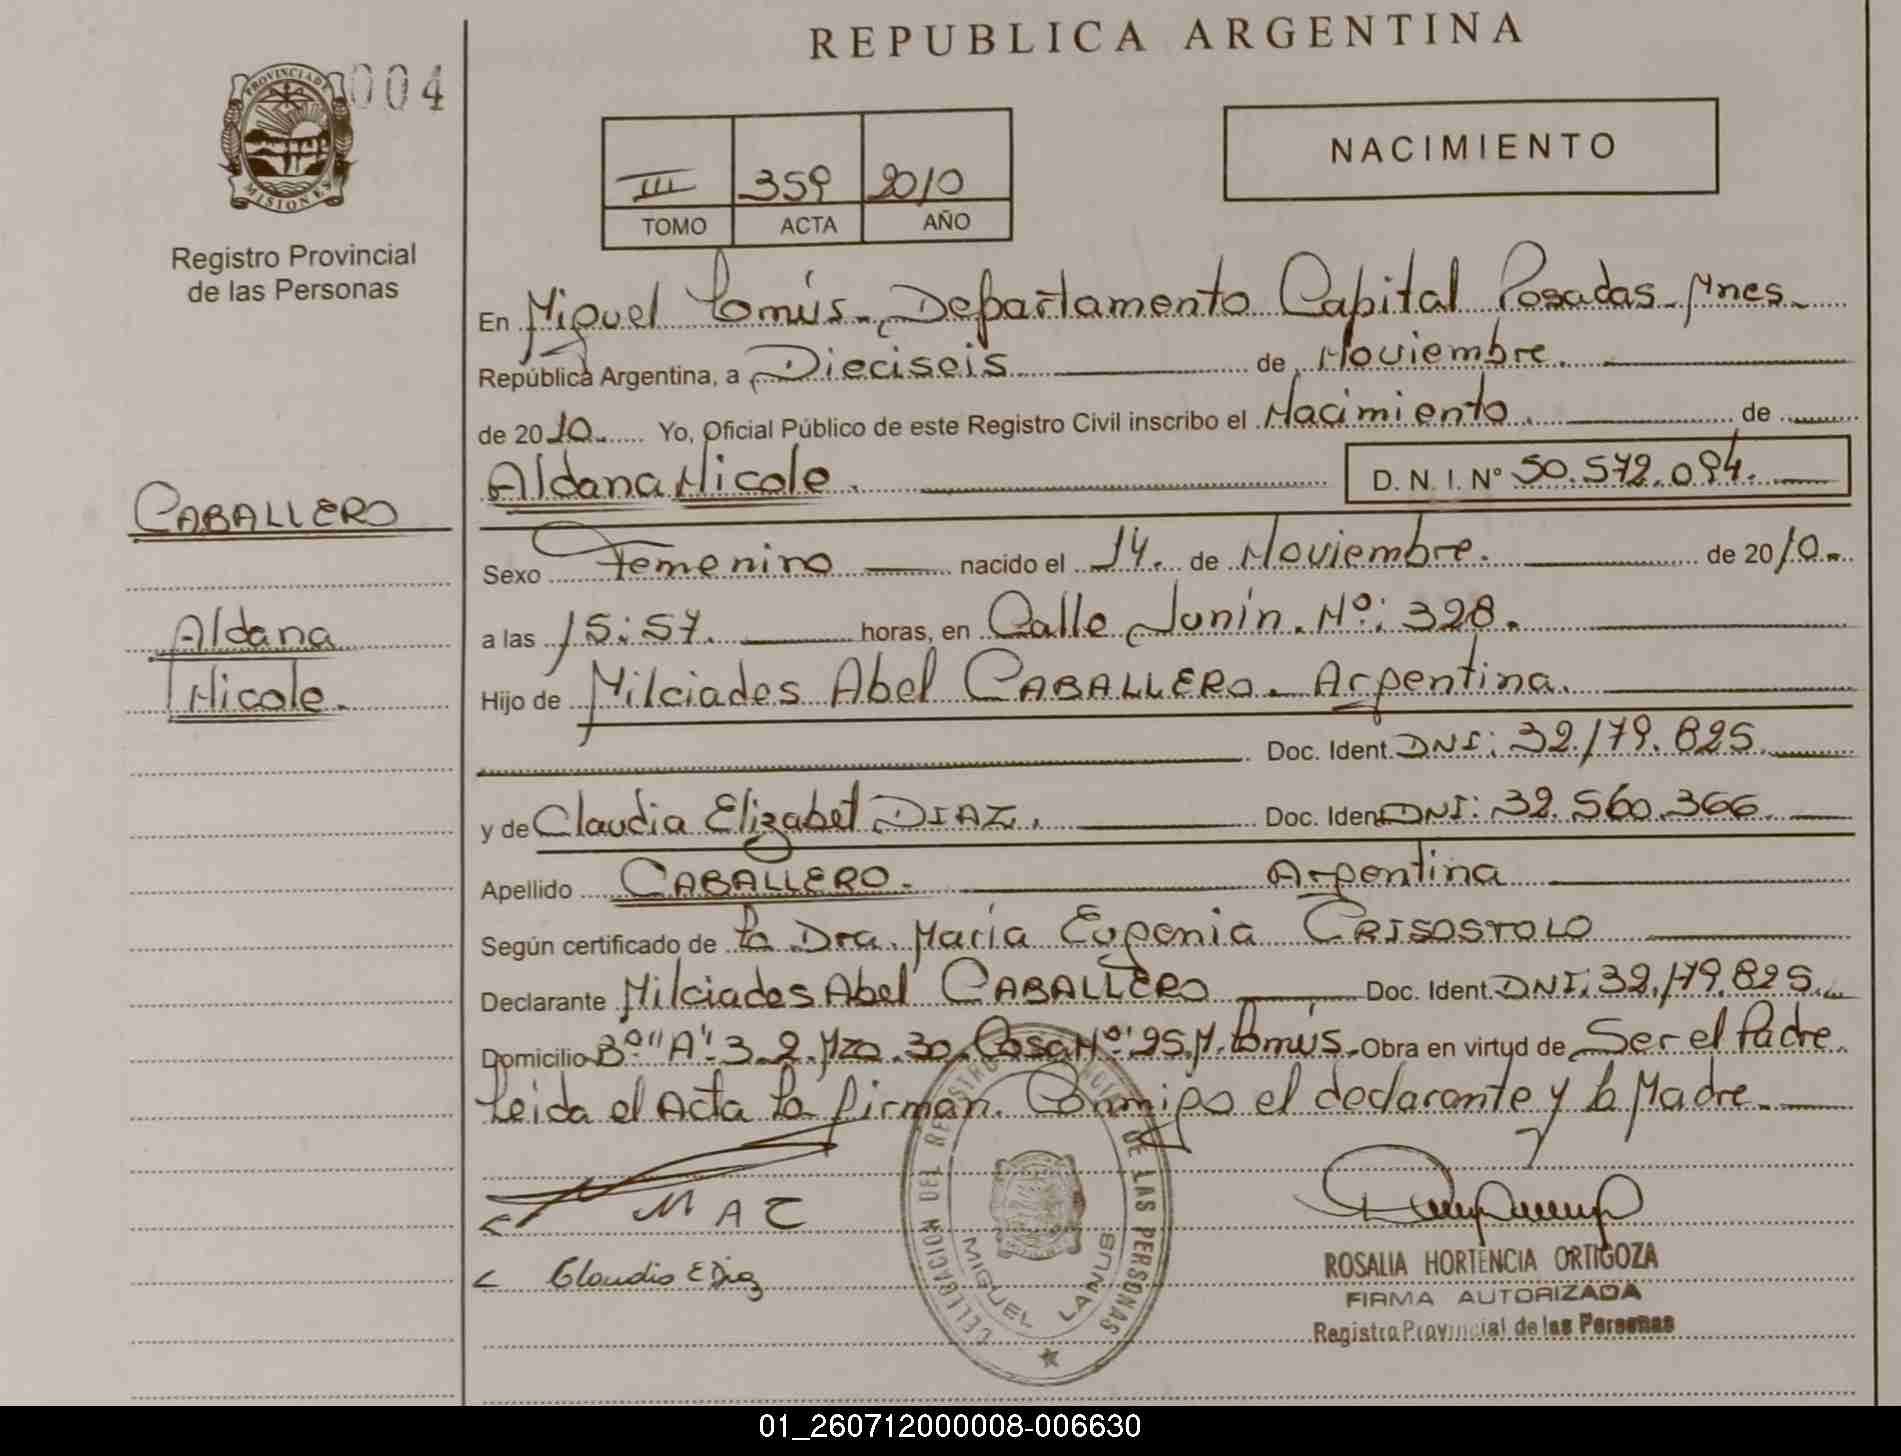 REPUBLICA ARGENTINA
PROVINCIA DE MISIONES
004
Registro Provincial
de las Personas
III 359 2010
TOMO ACTA AÑO
NACIMIENTO
En Miguel Lanús. Departamento Capital Posadas. Mnes.
República Argentina, a Dieciseis de Noviembre.
de 2010. Yo, Oficial Público de este Registro Civil inscribo el Nacimiento. de
Aldana Nicole. D. N. I. Nº 50.572.094.
CABALLERO
Aldana
Nicole.
Sexo Femenino nacido el 14. de Noviembre. de 2010.
a las 15:57. horas, en Calle Junín. Nº: 328.
Hijo de Milciades Abel CABALLERO. Argentina.
Doc. Ident. DNI: 32.179.825
y de Claudia Elizabet DIAZ. Doc. Iden DNI: 32.560.366
Apellido CABALLERO. Argentina
Según certificado de la Dra. María Eugenia CRISOSTOLO
Declarante Milciades Abel CABALLERO Doc. Ident. DNI: 32.179.825.
Domicilio Bº "A" 3.2. Mza. 30. Casa Nº 25. M. Lanús. Obra en virtud de Ser el Padre.
Leida el Acta la firman. Conmigo el declarante y la Madre.
M A C
Claudia E Diaz
DELEGACION DEL REGISTRO PROVINCIAL DE LAS PERSONAS
MIGUEL LANUS
ROSALIA HORTENCIA ORTIGOZA
FIRMA AUTORIZADA
Registro Provincial de las Personas
01_260712000008-006630